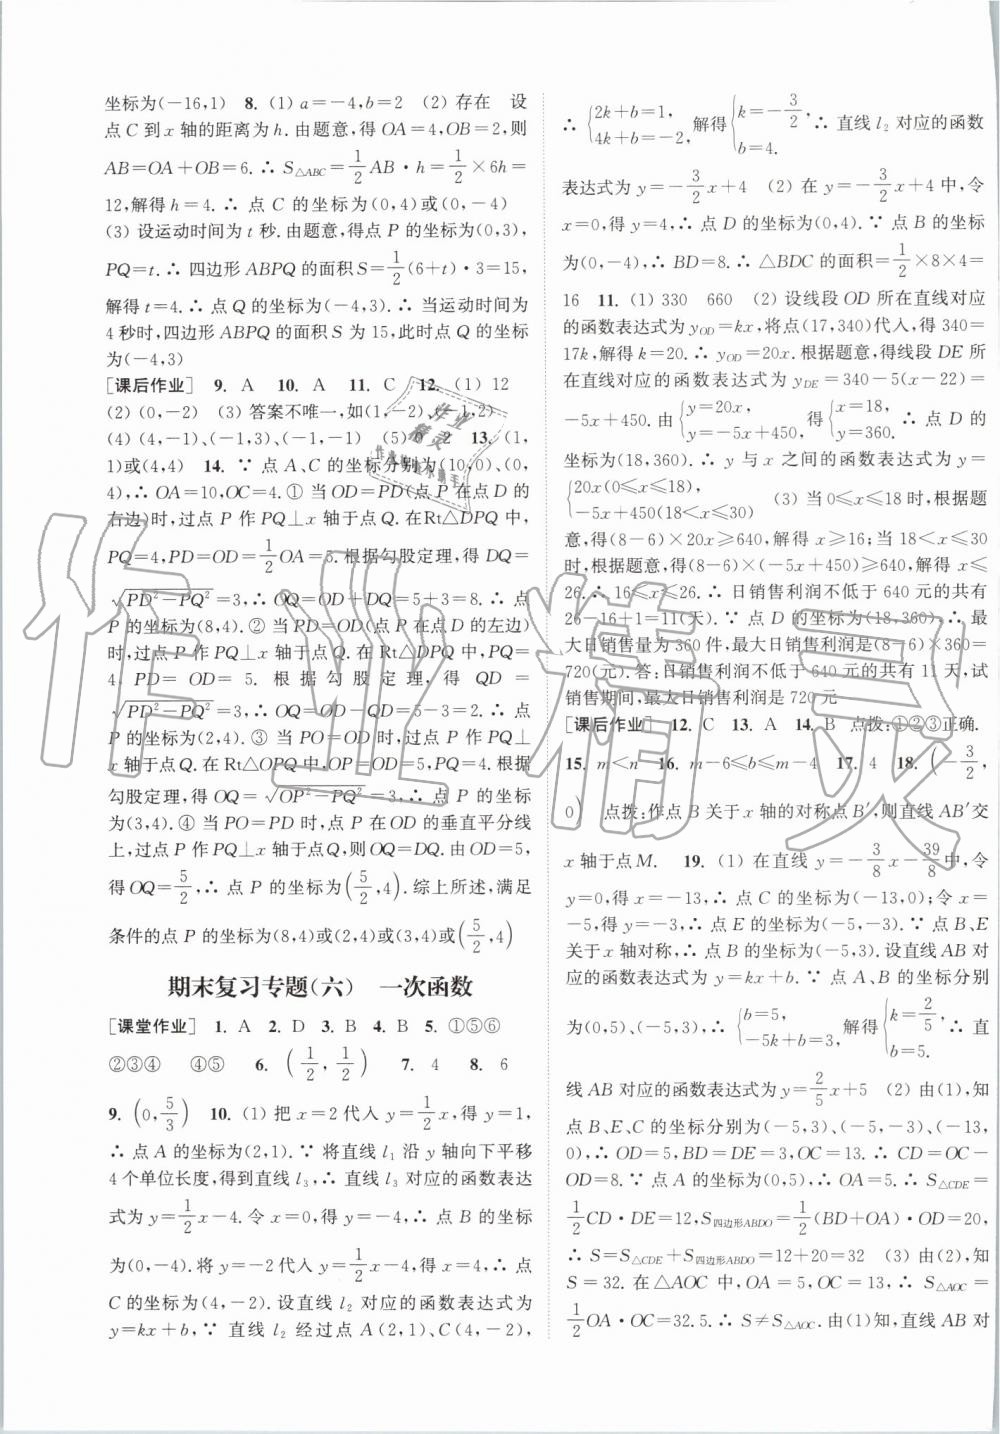 坐标为(-16,1)  8. (1) a=-4,b=2  (2) 存在  设
点 C 到 x 轴的距离为 h. 由题意，得 OA=4,OB=2,则
AB=OA+OB=6. ∴ S△ABC=1/2 AB·h=1/2×6h=
12,解得 h=4. ∴ 点 C 的坐标为(0,4)或(0,-4)
(3) 设运动时间为 t 秒. 由题意,得点 P 的坐标为(0,3),
PQ=t. ∴ 四边形 ABPQ 的面积 S=1/2(6+t)·3=15,
解得 t=4. ∴ 点 Q 的坐标为(-4,3). ∴ 当运动时间为
4 秒时,四边形 ABPQ 的面积 S 为 15,此时点 Q 的坐标
为(-4,3)
[课后作业]  9. A  10. A  11. C  12. (1) 12
(2) (0,-2)  (3) 答案不唯一,如(1,-2)、(-1,2)
(4) (4,-1)、(-1,-6)  (5) 0  2  13. (1,
1)或(4,4)  14. ∵ 点 A、C 的坐标分别为(10,0)、(0,
4),∴ OA=10,OC=4. ① 当 OD=PD(点 P 在点 D 的
右边)时,过点 P 作 PQ⊥x 轴于点 Q. 在Rt△DPQ 中,
PQ=4,PD=OD=1/2 OA=5. 根据勾股定理,得 DQ=
√(PD²-PQ²)=3,∴ OQ=OD+DQ=5+3=8. ∴ 点
P 的坐标为(8,4). ② 当 PD=OD(点 P 在点 D 的左边)
时,过点 P 作 PQ⊥x 轴于点 Q. 在 Rt△DPQ 中,PQ=
4, PD= OD= 5. 根据勾股定理, 得 QD=
√(PD²-PQ²)=3,∴ OQ=OD-QD=5-3=2. ∴ 点
P 的坐标为(2,4). ③ 当 PO=OD 时,过点 P 作 PQ⊥x
轴于点 Q. 在 Rt△OPQ 中,OP=OD=5,PQ=4. 根据
勾股定理,得 OQ=√(OP²-PQ²)=3. ∴ 点 P 的坐标
为(3,4). ④ 当 PO=PD 时,点 P 在 OD 的垂直平分线
上,过点 P 作 PQ⊥x 轴于点 Q,则 OQ=QD. ∵ OD=5,
得 OQ=5/2,∴ 点 P 的坐标为(5/2,4). 综上所述,满足
条件的点 P 的坐标为(8,4)或(2,4)或(3,4)或(5/2,4)
期末复习专题(六)  一次函数
[课堂作业]  1. A  2. D  3. B  4. B  5. ①⑤⑥
②③④  ④⑤  6. (1/2,1/2)  7. 4  8. 6
9. (0,5/3)  10. (1) 把 x=2 代入 y=1/2 x,得 y=1,
∴ 点 A 的坐标为(2,1). ∵ 将直线 l₁ 沿 y 轴向下平移
4 个单位长度,得到直线 l₃,∴ 直线 l₃ 对应的函数表达
式为 y=1/2 x-4. 令 x=0,得 y=-4,∴ 点 B 的坐标
为(0,-4). 将 y=-2 代入 y=1/2 x-4,得 x=4,∴ 点
C 的坐标为(4,-2). 设直线 l₂ 对应的函数表达式为
y=kx+b,∵ 直线 l₂ 经过点 A(2,1)、C(4,-2),
∴ {2k+b=1, 4k+b=-2, 解得 {k=-3/2, b=4. ∴ 直线 l₂ 对应的函数
表达式为 y=-3/2 x+4  (2) 在 y=-3/2 x+4 中,令
x=0,得 y=4,∴ 点 D 的坐标为(0,4). ∵ 点 B 的坐标
为(0,-4),∴ BD=8. ∴ △BDC 的面积=1/2×8×4=
16  11. (1) 330  660  (2) 设线段 OD 所在直线对应
的函数表达式为 yOD=kx,将点(17,340)代入,得 340=
17k,解得 k=20. ∴ yOD=20x. 根据题意,得线段 DE 所
在直线对应的函数表达式为 yDE=340-5(x-22)=
-5x+450. 由 {y=20x, y=-5x+450, 得 {x=18, y=360. ∴ 点 D 的
坐标为(18,360). ∴ y 与 x 之间的函数表达式为 y=
{20x(0≤x≤18), -5x+450(18<x≤30)  (3) 当 0≤x≤18 时,根据题
意,得(8-6)×20x≥640,解得 x≥16;当 18<x≤30
时,根据题意,得(8-6)×(-5x+450)≥640,解得 x≤
26. ∴ 16≤x≤26. ∴ 日销售利润不低于 640 元的共有
26-16+1=11(天). ∵ 点 D 的坐标为(18,360),∴ 最
大日销售量为 360 件,最大日销售利润是(8-6)×360=
720(元). 答:日销售利润不低于 640 元的共有 11 天,试
销售期间,最大日销售利润是 720 元
[课后作业]  12. C  13. A  14. B  点拨:①②③正确.
15. m<n  16. m-6≤b≤m-4  17. 4  18. (-3/2,
0)  点拨:作点 B 关于 x 轴的对称点 B′,则直线 AB′交
x 轴于点 M.  19. (1) 在直线 y=-3/8 x-39/8中,令
y=0,得 x=-13,∴ 点 C 的坐标为(-13,0);令 x=
-5,得 y=-3,∴ 点 E 的坐标为(-5,-3). ∵ 点 B、E
关于 x 轴对称,∴ 点 B 的坐标为(-5,3). 设直线 AB 对应
的函数表达式为 y=kx+b. ∵ 点 A、B 的坐标分别
为(0,5)、(-5,3),∴ {b=5, -5k+b=3, 解得 {k=2/5, b=5. ∴ 直
线 AB 对应的函数表达式为 y=2/5 x+5  (2) 由(1),知
点 B、E、C 的坐标分别为(-5,3)、(-5,-3)、(-13,
0),∴ OD=5,BD=DE=3,OC=13. ∴ CD=OC-
OD=8. ∵ 点 A 的坐标为(0,5),∴ OA=5. ∴ S△CDE=
1/2 CD·DE=12,S四边形ABDO=1/2(BD+OA)·OD=20,
∴ S=S△CDE+S四边形ABDO=12+20=32  (3) 由(2),知
S=32. 在△AOC 中,OA=5,OC=13,∴ S△AOC=
1/2 OA·OC=32.5. ∴ S≠S△AOC. 由(1)知,直线 AB 对
作业精灵